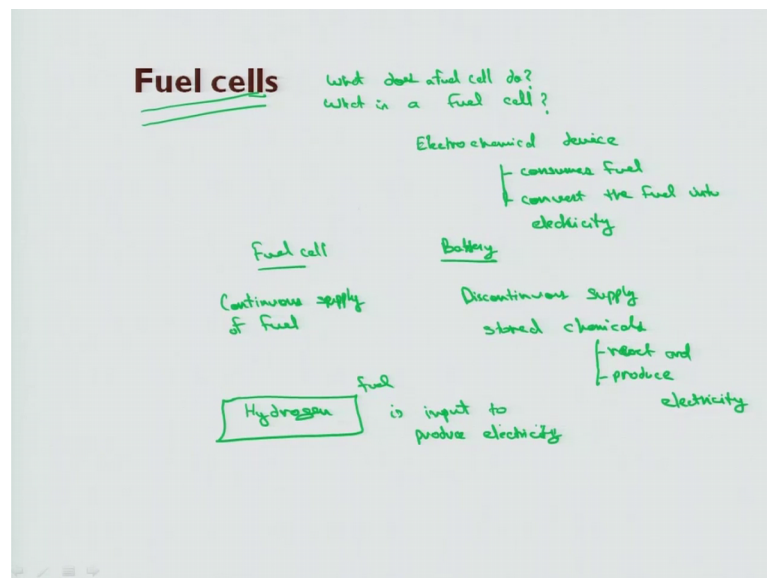 Fuel cells
What does a fuel cell do?
What is a fuel cell?
Electrochemical device
- consumes fuel
- convert the fuel into
electricity
Fuel cell
Battery
Continuous supply
of fuel
Discontinuous supply
stored chemicals
- react and
- produce
electricity
fuel
Hydrogen is input to
produce electricity